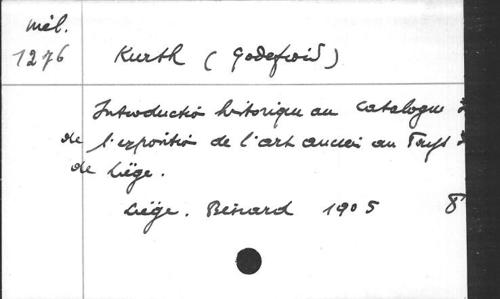 Mél.
1276 Kurth (Godefroid)
Introduction historique au Catalogue
de l'exposition de l'art ancien au Pays
de Liége.
Liége. Bénard 1905 8